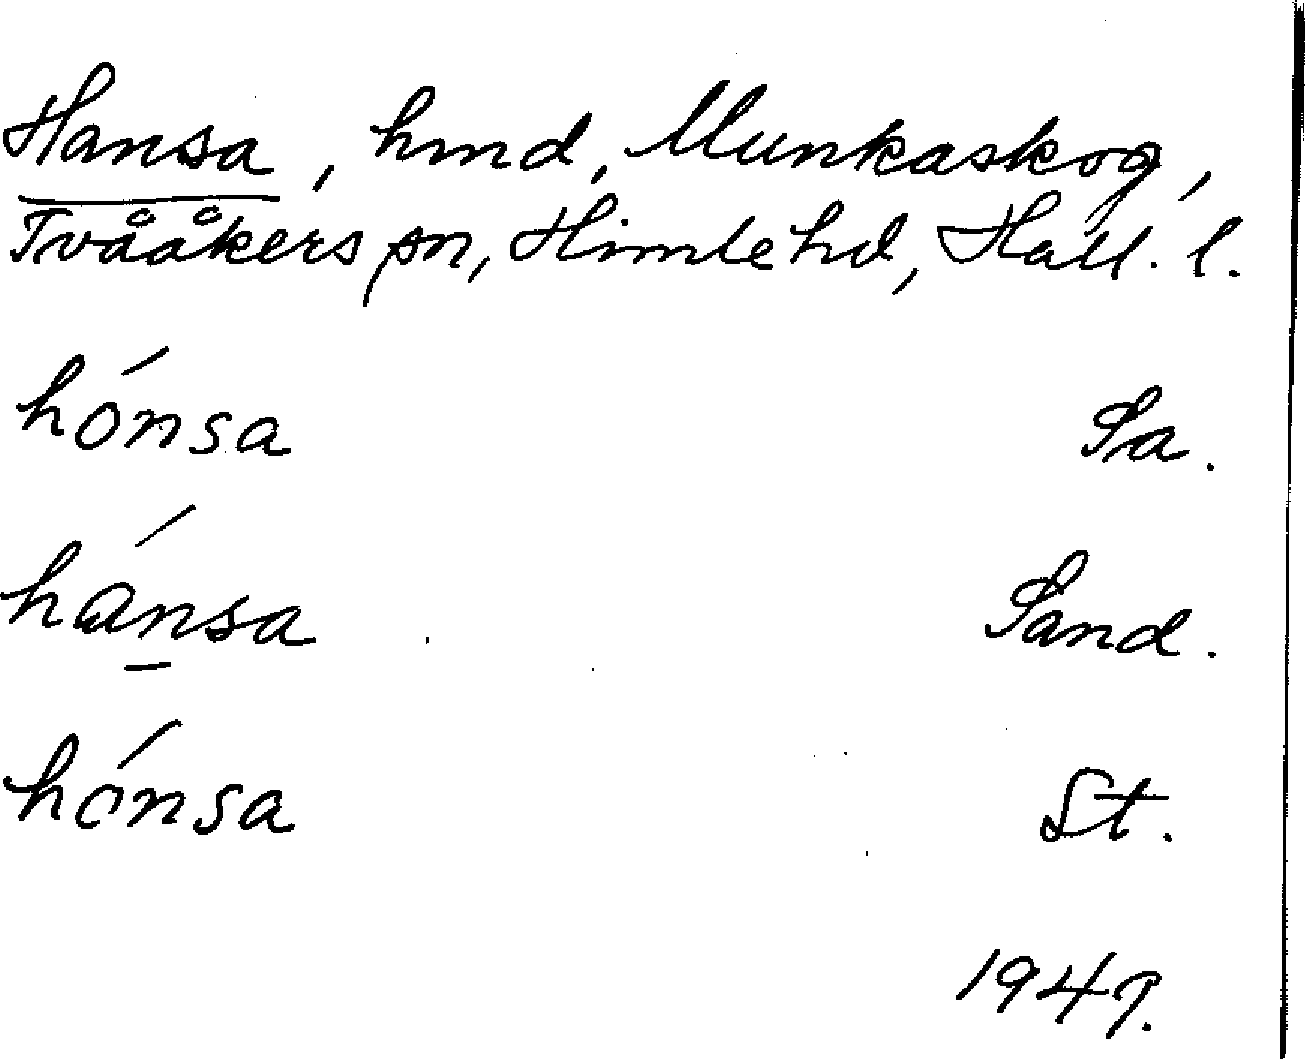 Hansa, hmd, Munkaskog,
Tvååkers sn, Himle hd, Hall. l.
hónsa Sa.
hánsa Sand.
hónsa St.
1947.